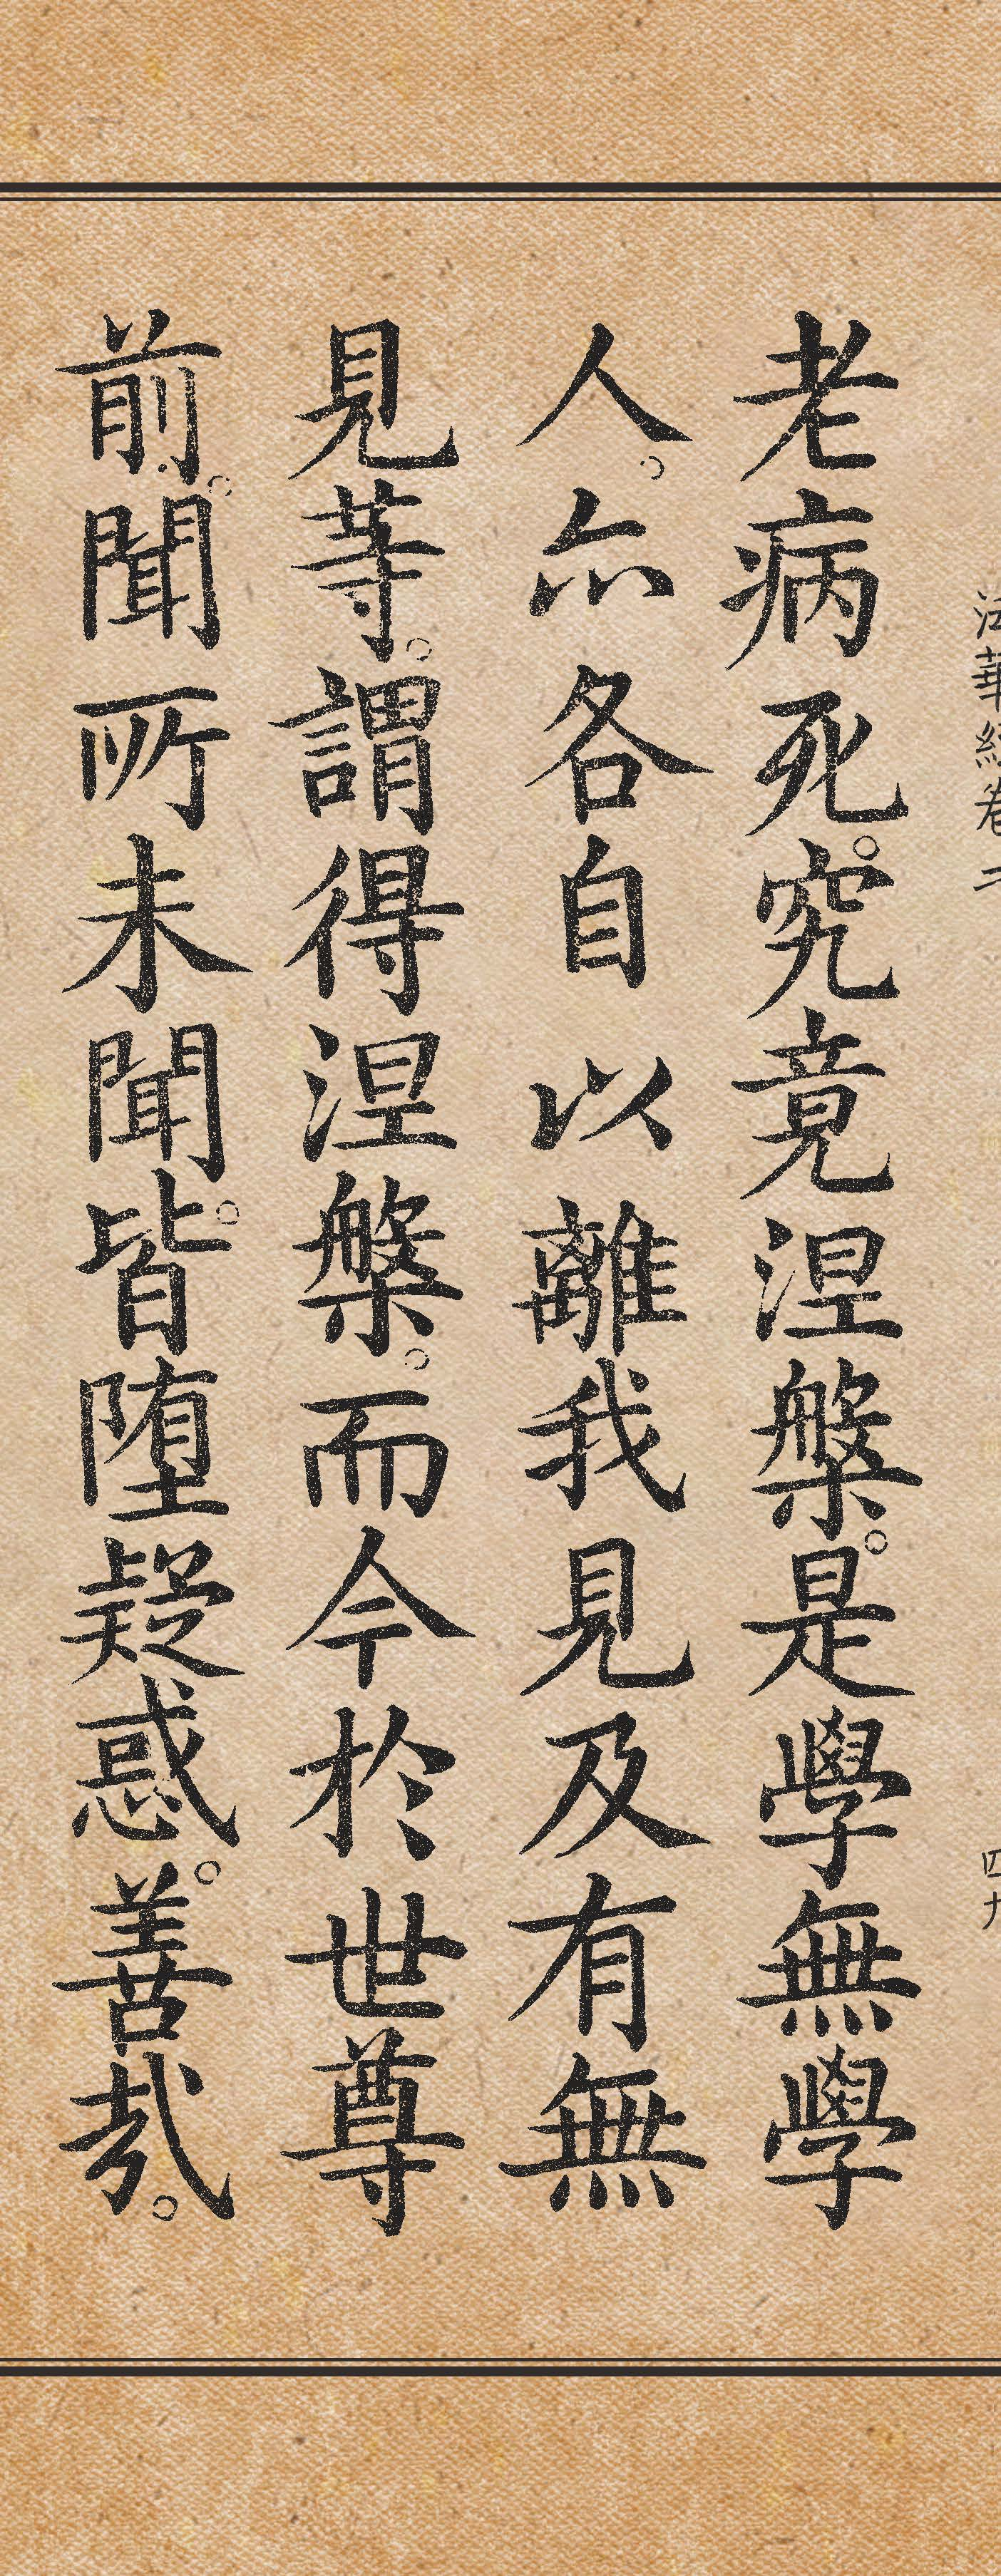 法華經卷二
四九
老病死。究竟涅槃。是學無學
人。亦各自以離我見及有無
見等。謂得涅槃。而今於世尊
前。聞所未聞。皆墮疑惑。善哉。